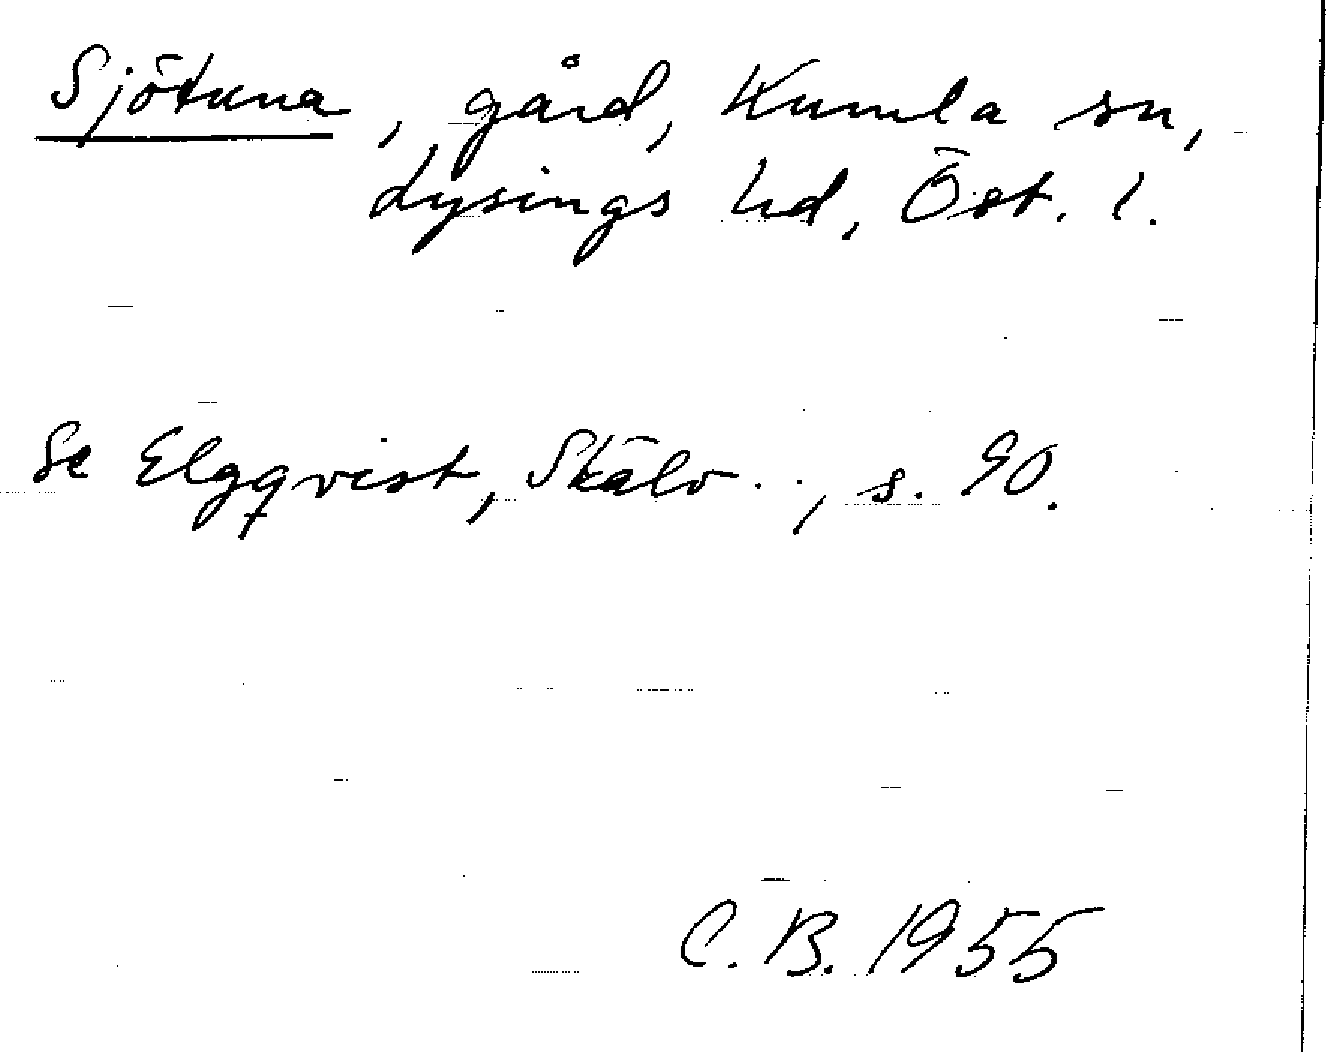 Sjötuna, gård, Kumla sn,
Lysings hd, Öst. l.
Se Elgqvist, Skälv . . , s. 90.
C. B. 1955